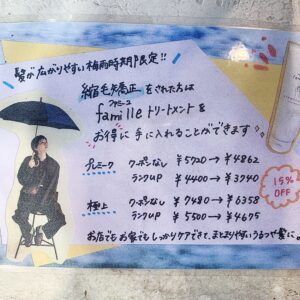 髪が広がりやすい梅雨時期限定!!
縮毛矯正をされた方は
ファミーユ
famille トリートメントを
お得に手に入れることができます
プレミーク クーポンなし ¥5720→¥4862
ランクUP ¥4400→¥3740
極上 クーポンなし ¥7480→¥6358
ランクUP ¥5500→¥4675
15%
OFF
お店でもお家でもしっかりケアできて、まとまりやすいうるつや髪に。